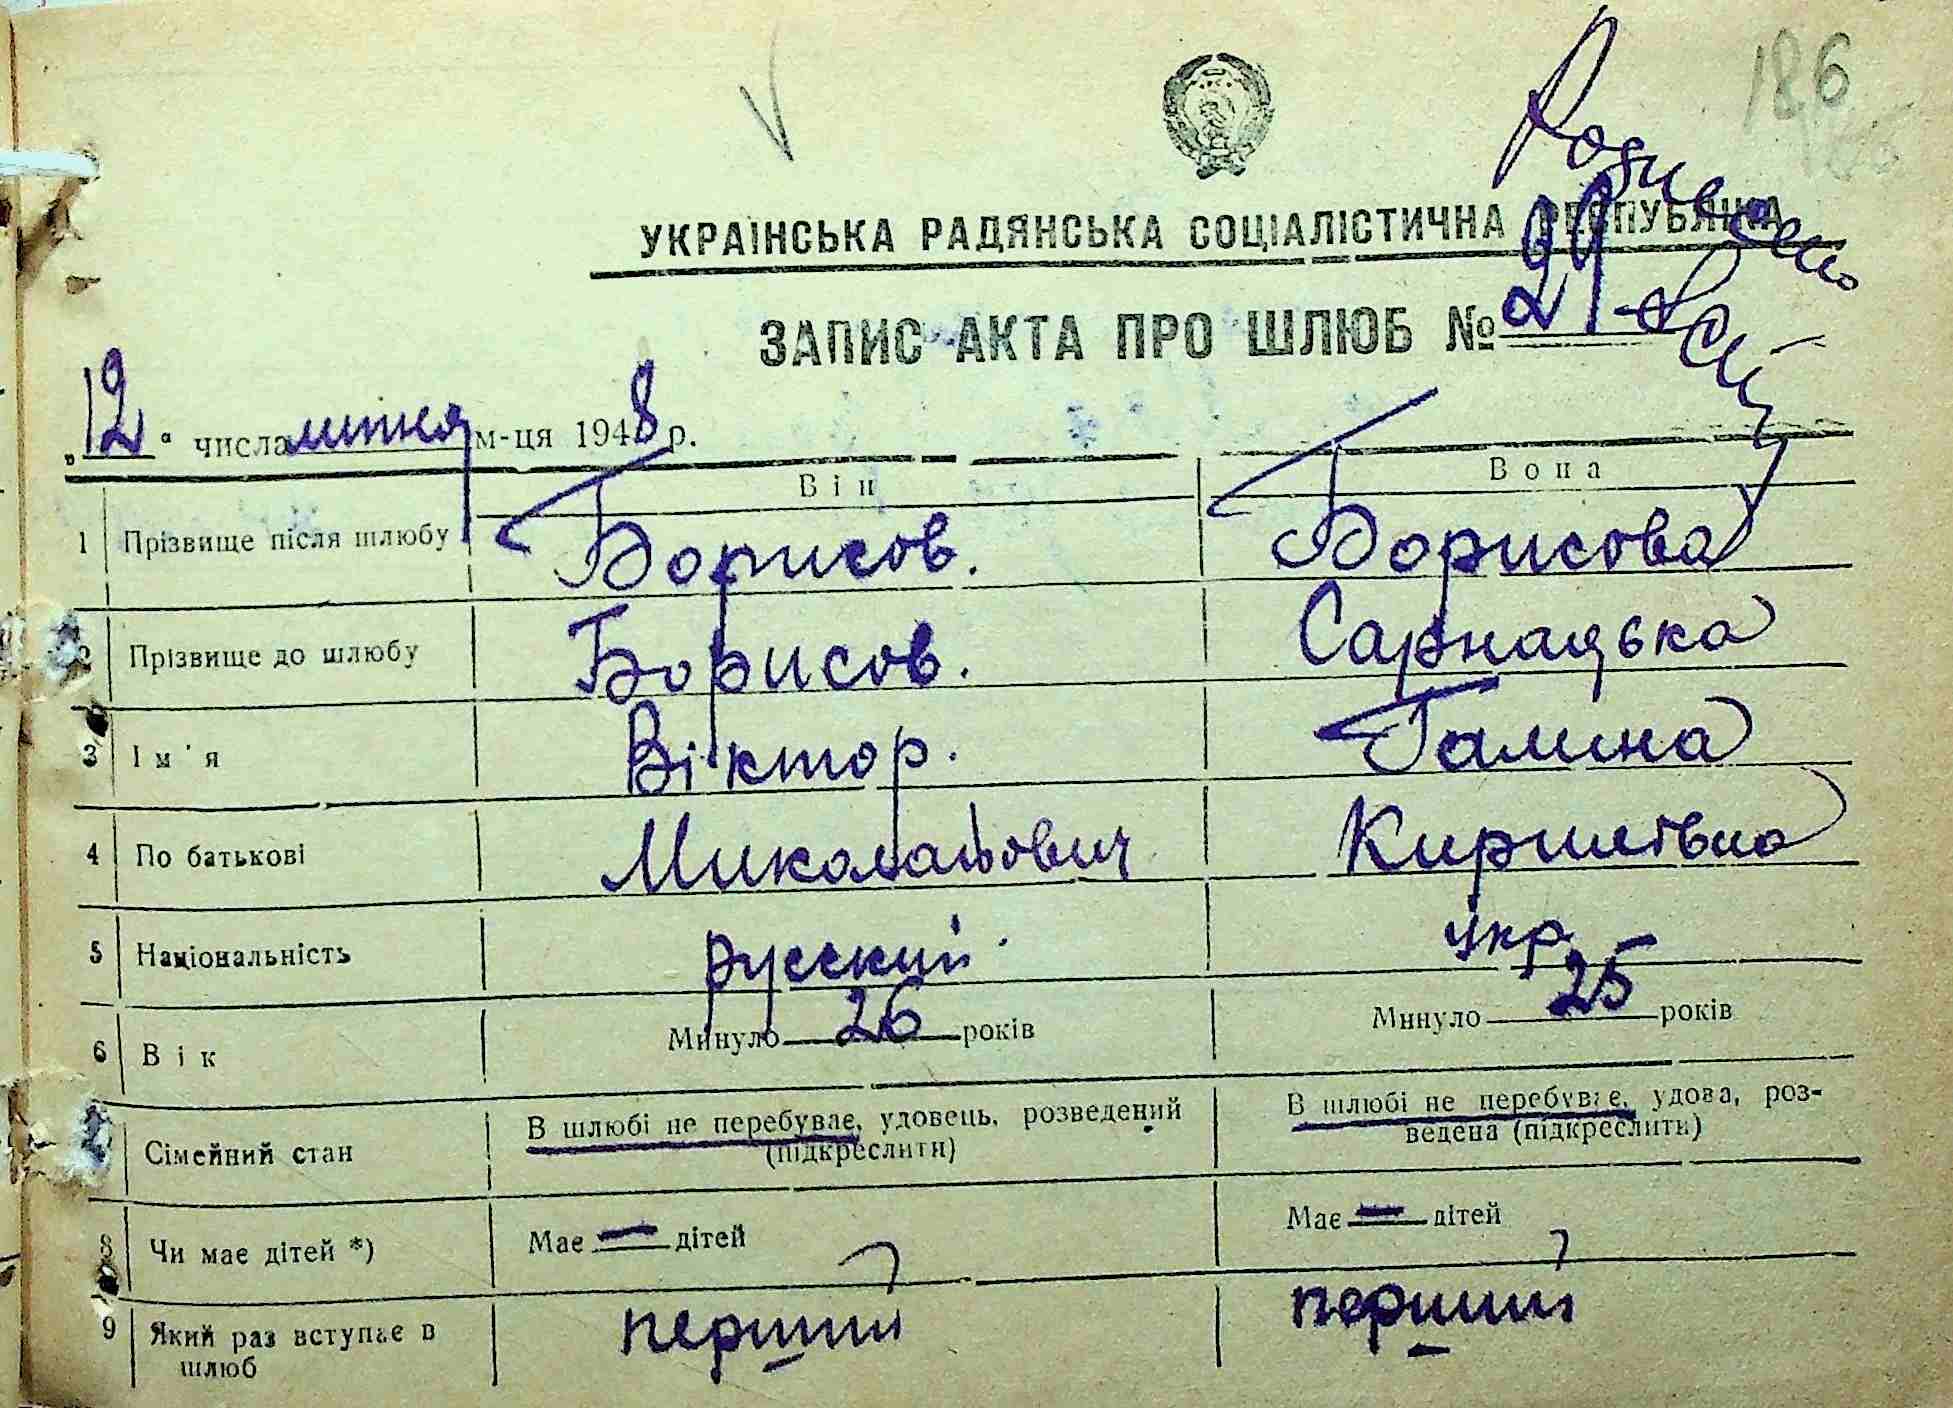 186
УКРАЇНСЬКА РАДЯНСЬКА СОЦІАЛІСТИЧНА РЕСПУБЛІКА
ЗАПИС АКТА ПРО ШЛЮБ № 29
„12“ числа липня м-ця 1948 р.
Він Вона
1 Прізвище після шлюбу Борисов. Борисова
2 Прізвище до шлюбу Борисов. Сарнацька
3 Ім'я Віктор. Галина
4 По батькові Миколайович Кирилівна
5 Національність русский. укр
6 Вік Минуло 26 років Минуло 25 років
Сімейний стан В шлюбі не перебуває, удовець, розведений (підкреслити) В шлюбі не перебуває, удова, роз-
ведена (підкреслити)
8 Чи має дітей *) Має — дітей Має — дітей
9 Який раз вступає в перший перший
шлюб